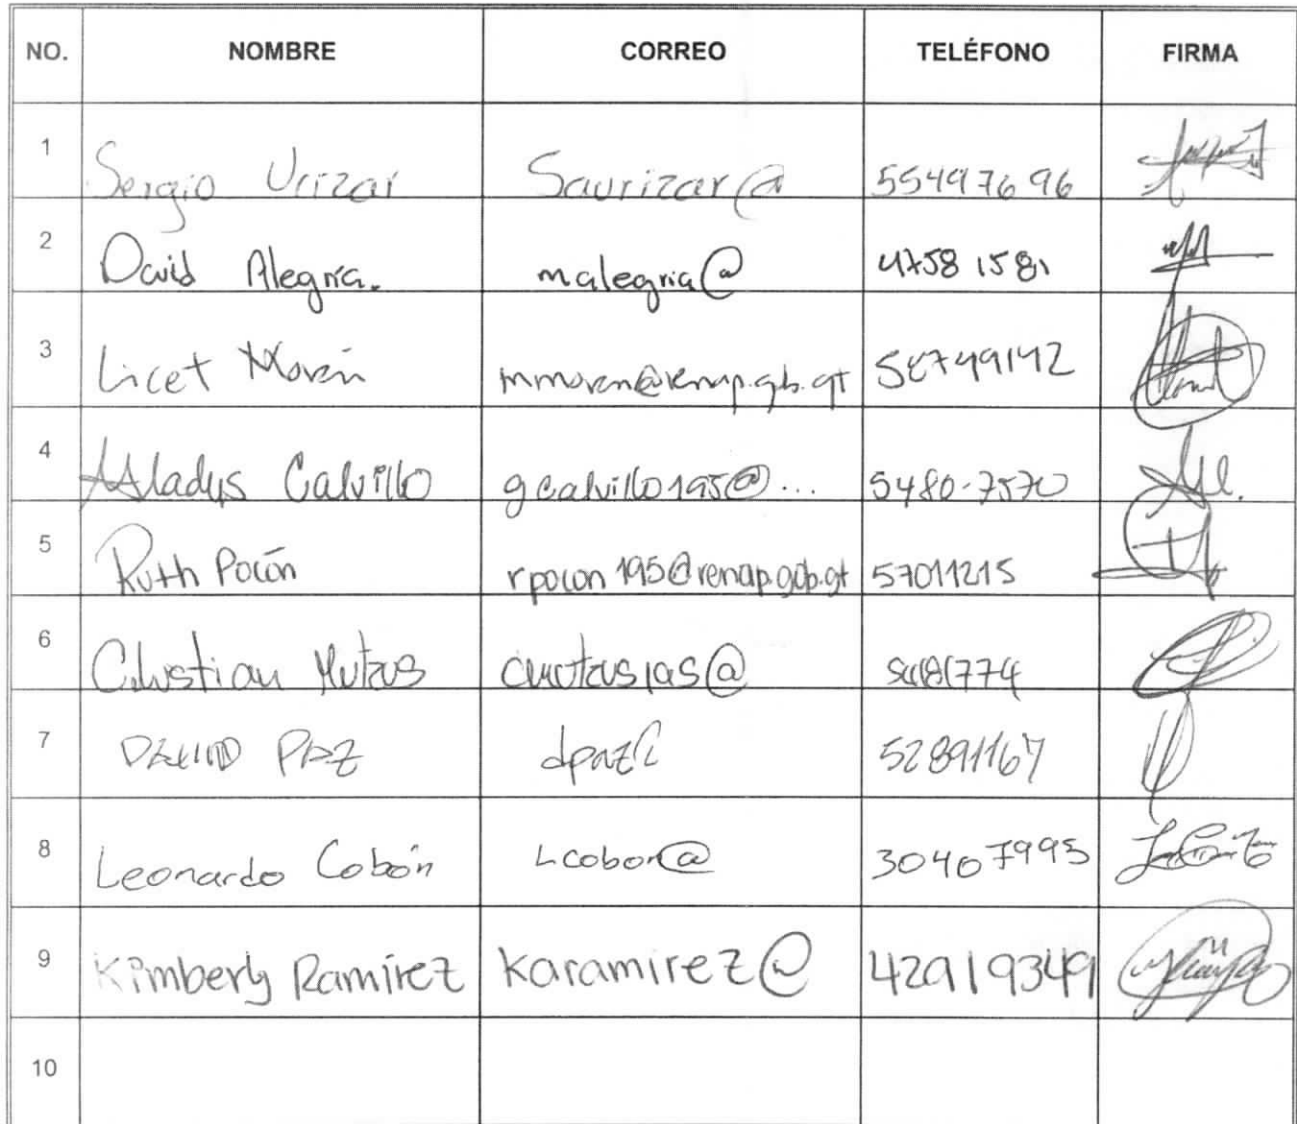 NO. NOMBRE CORREO TELÉFONO FIRMA
1 Sergio Urizar Saurizar@ 55497696
2 David Alegría. malegria@ 47581581
3 Licet Morán mmoran@renap.gob.gt 58749142
4 Gladys Calvillo gcalvillo195@... 5480-7570
5 Ruth Pocón rpocon195@renap.gob.gt 57011215
6 Christian Mutzus cmutzus195@
7 David Paz dpaz@ 52891167
8 Leonardo Cobón Lcobon@ 30407995
9 Kimberly Ramírez Karamirez@ 42919349
10